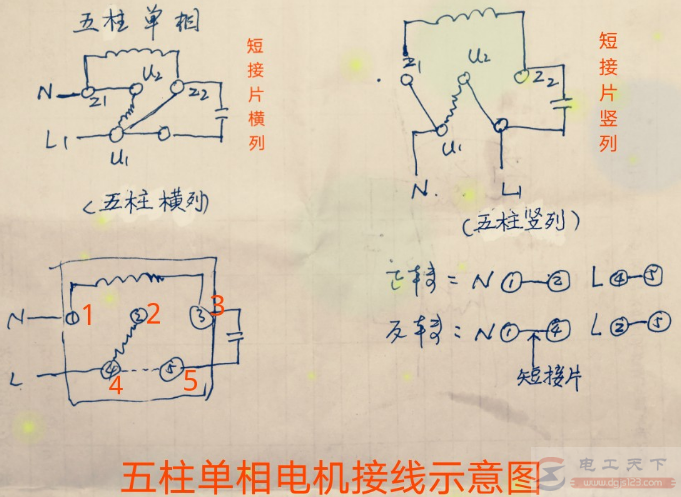 五柱单相
短接片横列
N
Z1
U2
Z2
L1
U1
(五柱横列)
短接片竖列
Z1
U2
Z2
U1
N
L1
(五柱竖列)
N
1 1
2 2
3 3
L
4 4
5 5
正转= N ①—② L ④—⑤
反转= N ①—④ L ②—⑤
短接片
五柱单相电机接线示意图
电工天下
www.dgjs123.com